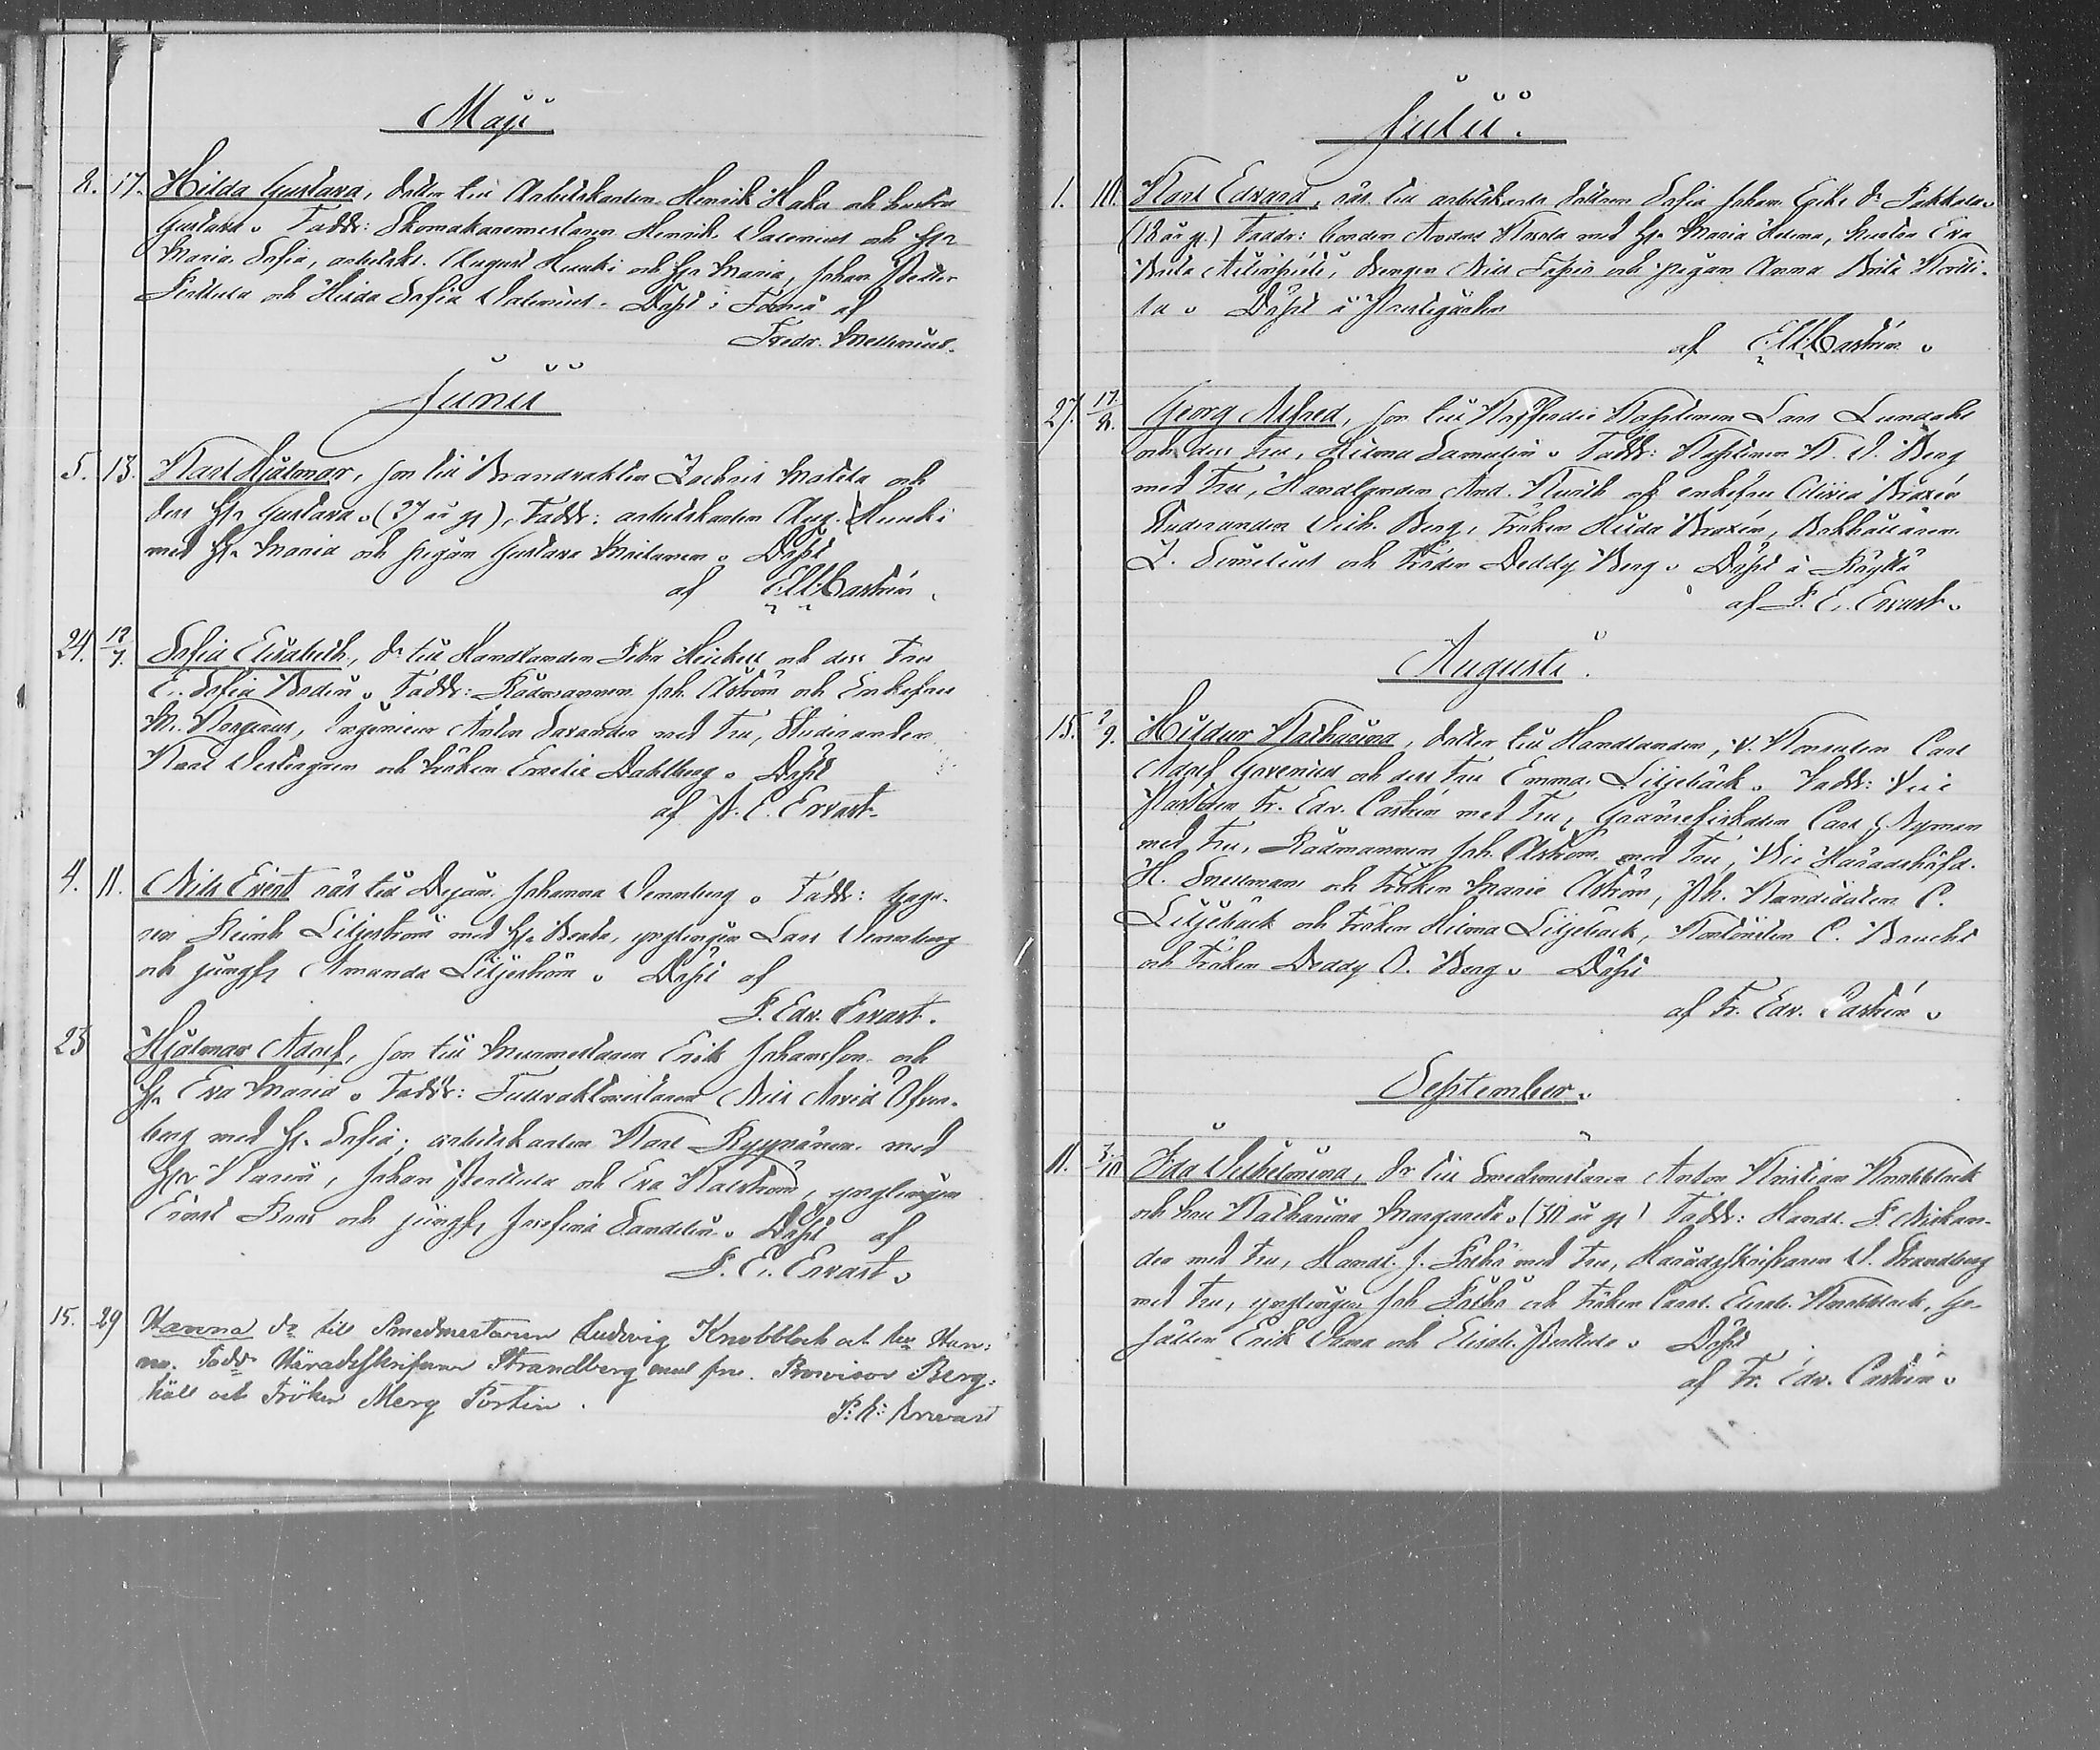 Maji
8. 17. Hilda Gustava, dotter till Arbetskarlen Henrik Haka och hustru
Gustava. Faddr: Skomakaremästaren Henrik Valenius och Hr
Maria Sofia, arbetsk. August Huuki och Hr Maria, Johan Petter
och Hilda Sofia Valenius. Döpt i Torneå af
Fredr. Mellenius.
Junii
5. 13. Karl Hjalmar, son till Brandvakten Zachris Mattila och
dess Hr Gustava. (27 år gl), Faddr: arbetskarlen Aug. Huuki
med Hr Maria och pigan Gustava. Döpt
af E.M. Castrén.
24. 12/7. Sofia Elisabeth, Dr till Handlanden Fehr Heickell och dess Fru
E. Sofia Bodén. Faddr: Rådmannen Joh. Åström och Enkefru
M., Ingenieur Anton med Fru, Studeranden
Karl Westergren och Fröken Emelie Dahlberg. Döpt
af P. E. Ervast.
4. 11. Nils Evert oäs till Dejan Johanna Wennberg. Faddr: baga-
ren Reinh. Liljeström med Hr Beata, ynglingen Lars Wennberg
och jungfr Amanda Liljeström. Döpt af
P. Edv. Ervast.
23 Hjalmar Adolf, son till Murmästaren Erik Johansson och
Hr Eva Maria. Faddr: Tullvaktmästaren Nils Arvid Öfver-
berg med Hr Sofia; arbetskarlen Karl Ryynänen med
Hr Maria, Johan Perttula och Eva Kalström, ynglingen
Ernst och jungfr Josefina Sandelin. Döpt af
P. E. Ervast.
15. 29 Hanna dr till Smedmestaren Ludvig Knobbloch och hu Han-
na. Faddr Häradsskrifvare Strandberg med fru. Provisor Berg-
häll och Fröken Mery Fortin.
P. E. Ervast
Julii.
1. 10. Karl Edvard, oäs. till arbetskarls dottren Sofia Johan Dr
(18 år gl.) Faddr: bonden Anders med Hr Maria Helena, hustru Eva
Brita, drengen Nils och pigan Anna Brita
la. Döpt i Prestegården
af E.M. Castrén.
27. 17/8. Georg Alfred, son till Kofferdie Kaptenen Lars Lundahl
och dess Fru, Hilma. Faddr: Kaptenen K. V. Berg
med Fru, Handlanden And. och enkefru Olivia Braxén
Studeranden Vilh. Berg, Fröken Hilda Braxén, Bokhållaren
Z. och Fröken Deddy Berg. Döpt i Röyttä
af P. E. Ervast.
Augusti.
15. 2/9. Hildur Katharina, dotter till Handlanden, v. Konsulen Carl
Adolf Grevenius och dess Fru Emma Liljebäck. Faddr: Vice
Pastoren Fr. Edv. Castrén med Fru, Gränsefiskalen Carl Nyman
med Fru, Rådmannen Joh. Åström med Fru, Vice Häradshöfd.
H. Snellman och Fröken Maria Åström, Ph. Kandidaten C.
Liljebäck och Fröken Hilma Liljebäck, Kontoristen C.
och Fröken Deddy O. Berg. Döpt
af Fr. Edv. Castrén.
September.
11. 3/10 Ida Vilhelmina, dr till Smedmestaren Anton Kristian Knobbloch
och hu Katharina Margareta. (30 år gl) Faddr: Handl. P. Nickan-
der med Fru, Handl. J. med Fru, Häradsskrifvaren V. Strandberg
med Fru, ynglingen Joh och Fröken Carol. Elisab. Knobbloch, Ge-
sällen Erik och Elisab. Perttula. Döpt
af Fr. Edv. Castrén.